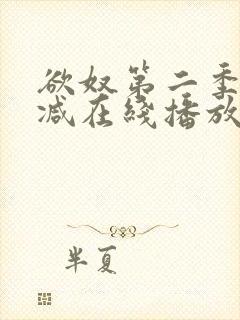 欲奴第二季
减在线播放
半夏